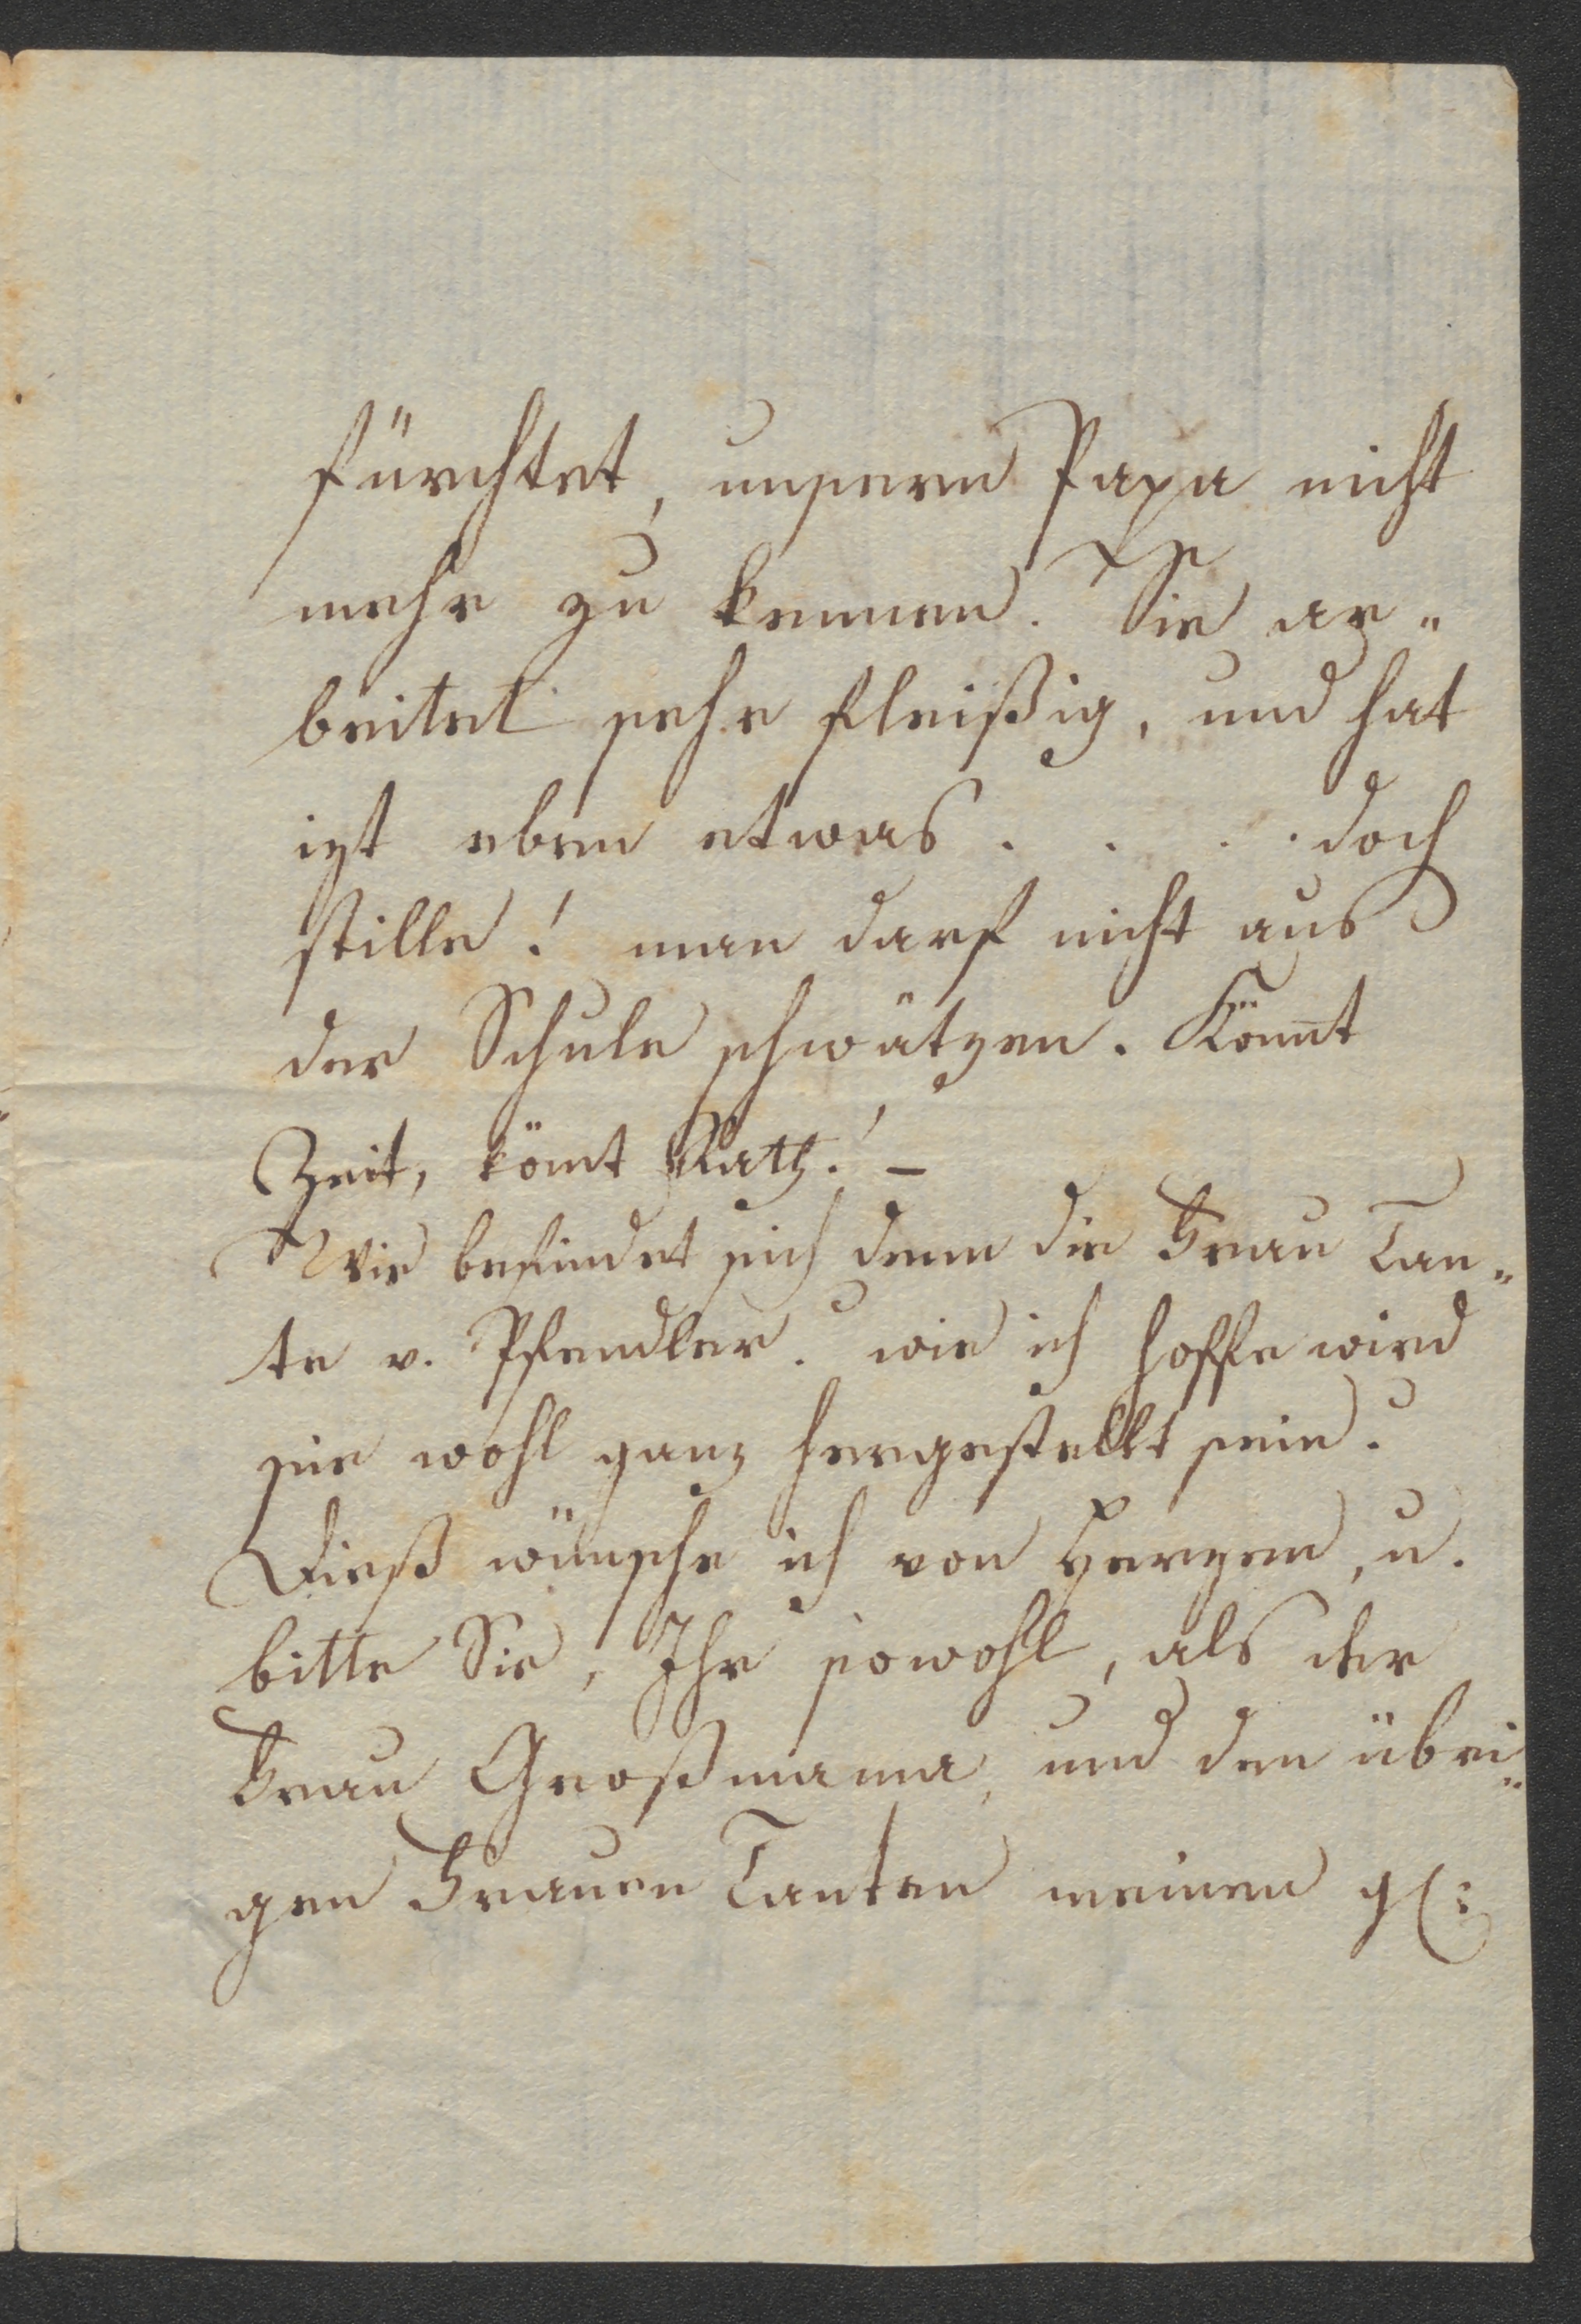 fürchtet, unseren Papa nicht
mehr zu kennen. Sie ar„
beitet sehr fleißig, und hat
izt eben etwas . . . . doch
stille! man darf nicht aus
der Schule schwätzen. Kömt
Zeit, kömt Rath! –
Wie befindet sich denn die Frau Tan„
te v. Pfendler? wie ich hoffe wird
sie wohl ganz hergestellt sein?
Dieß wünsche ich von Herzen, u.
bitte Sie, Ihr sowohl, als der
Frau Großmama, und den übri„
gen Frauen Tanten meinen